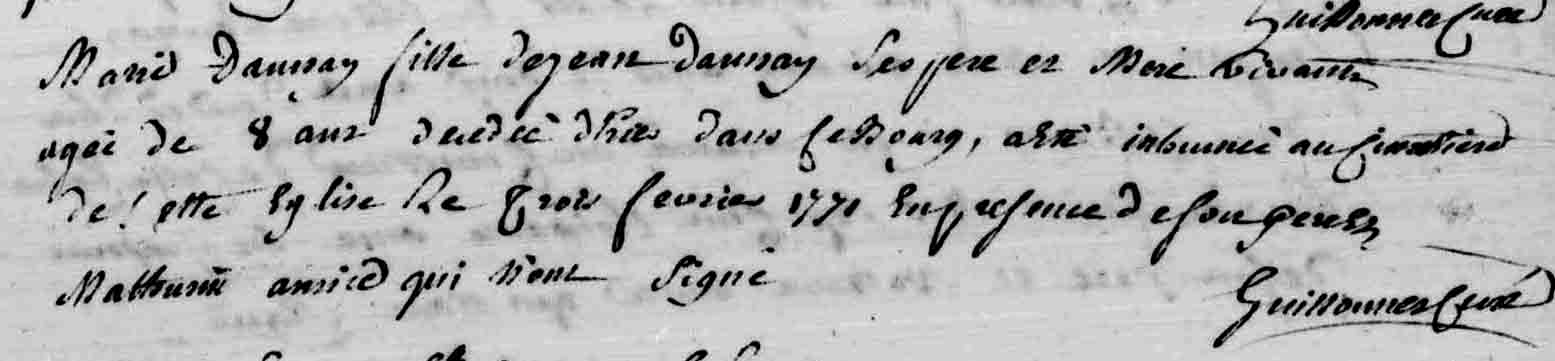 Guittonner Curé
Marie Daunay fille de Jean Daunay Ses pere et Mere vivants
agée de 8 ans decedée d'hier dans le Bourg, a Eté inhumée au Cimetiere
de Cette Eglise Le Trois fevrier 1771 En presence de son pere Et
Mathurin amice qui N'ont Signé
Guittonner Curé